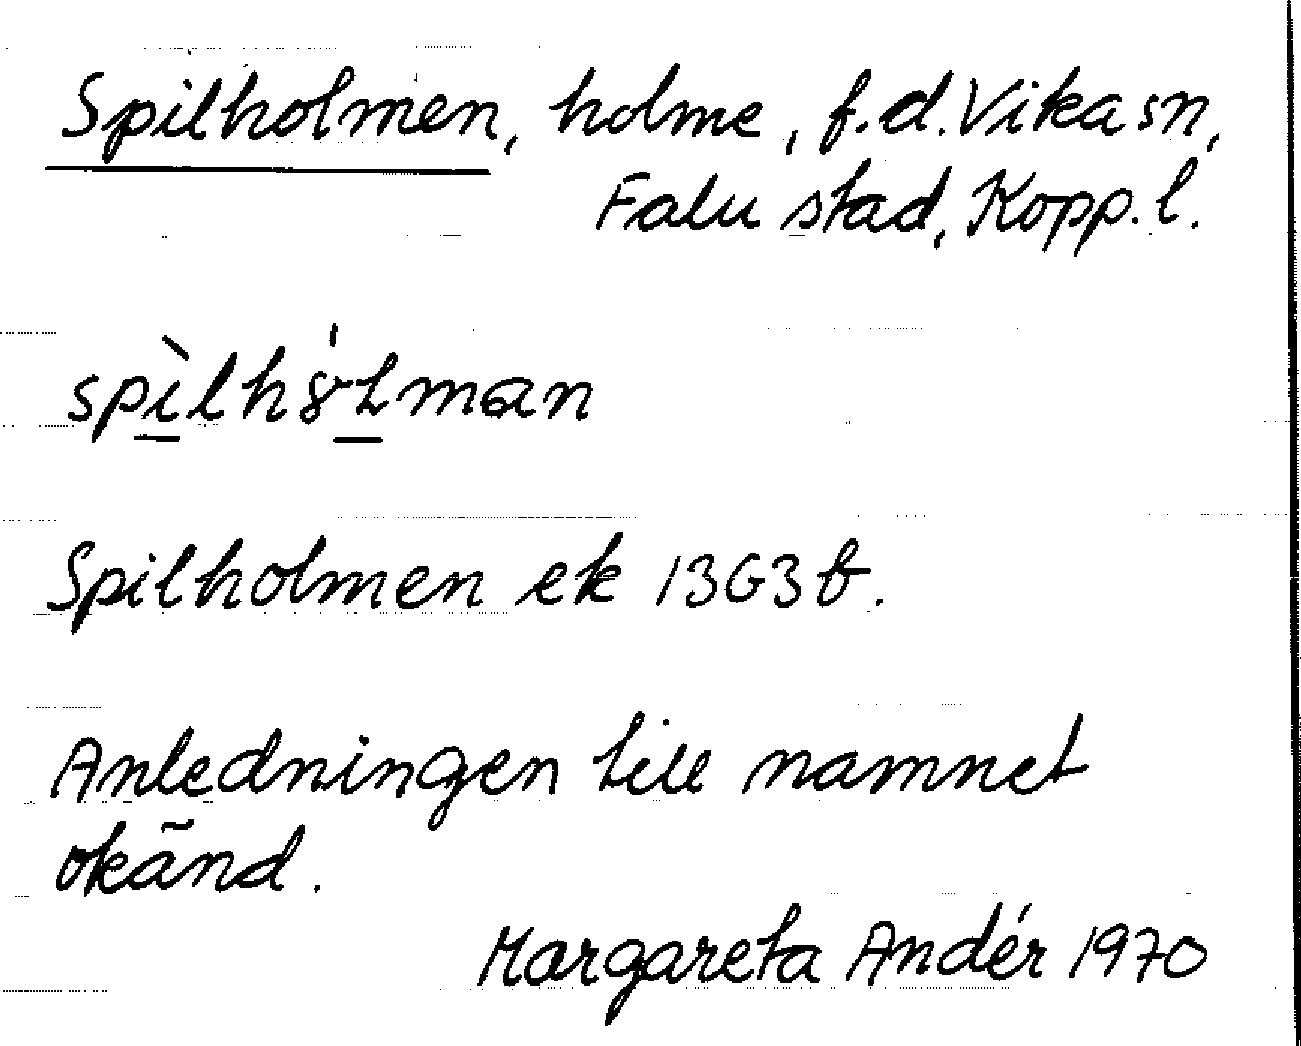 Spilholmen, holme, f.d. Vika sn,
Falu stad, Kopp. l.
spìlh8́Lman
Spilholmen ek 13G3b.
Anledningen till namnet
okänd.
Margareta Andér 1970